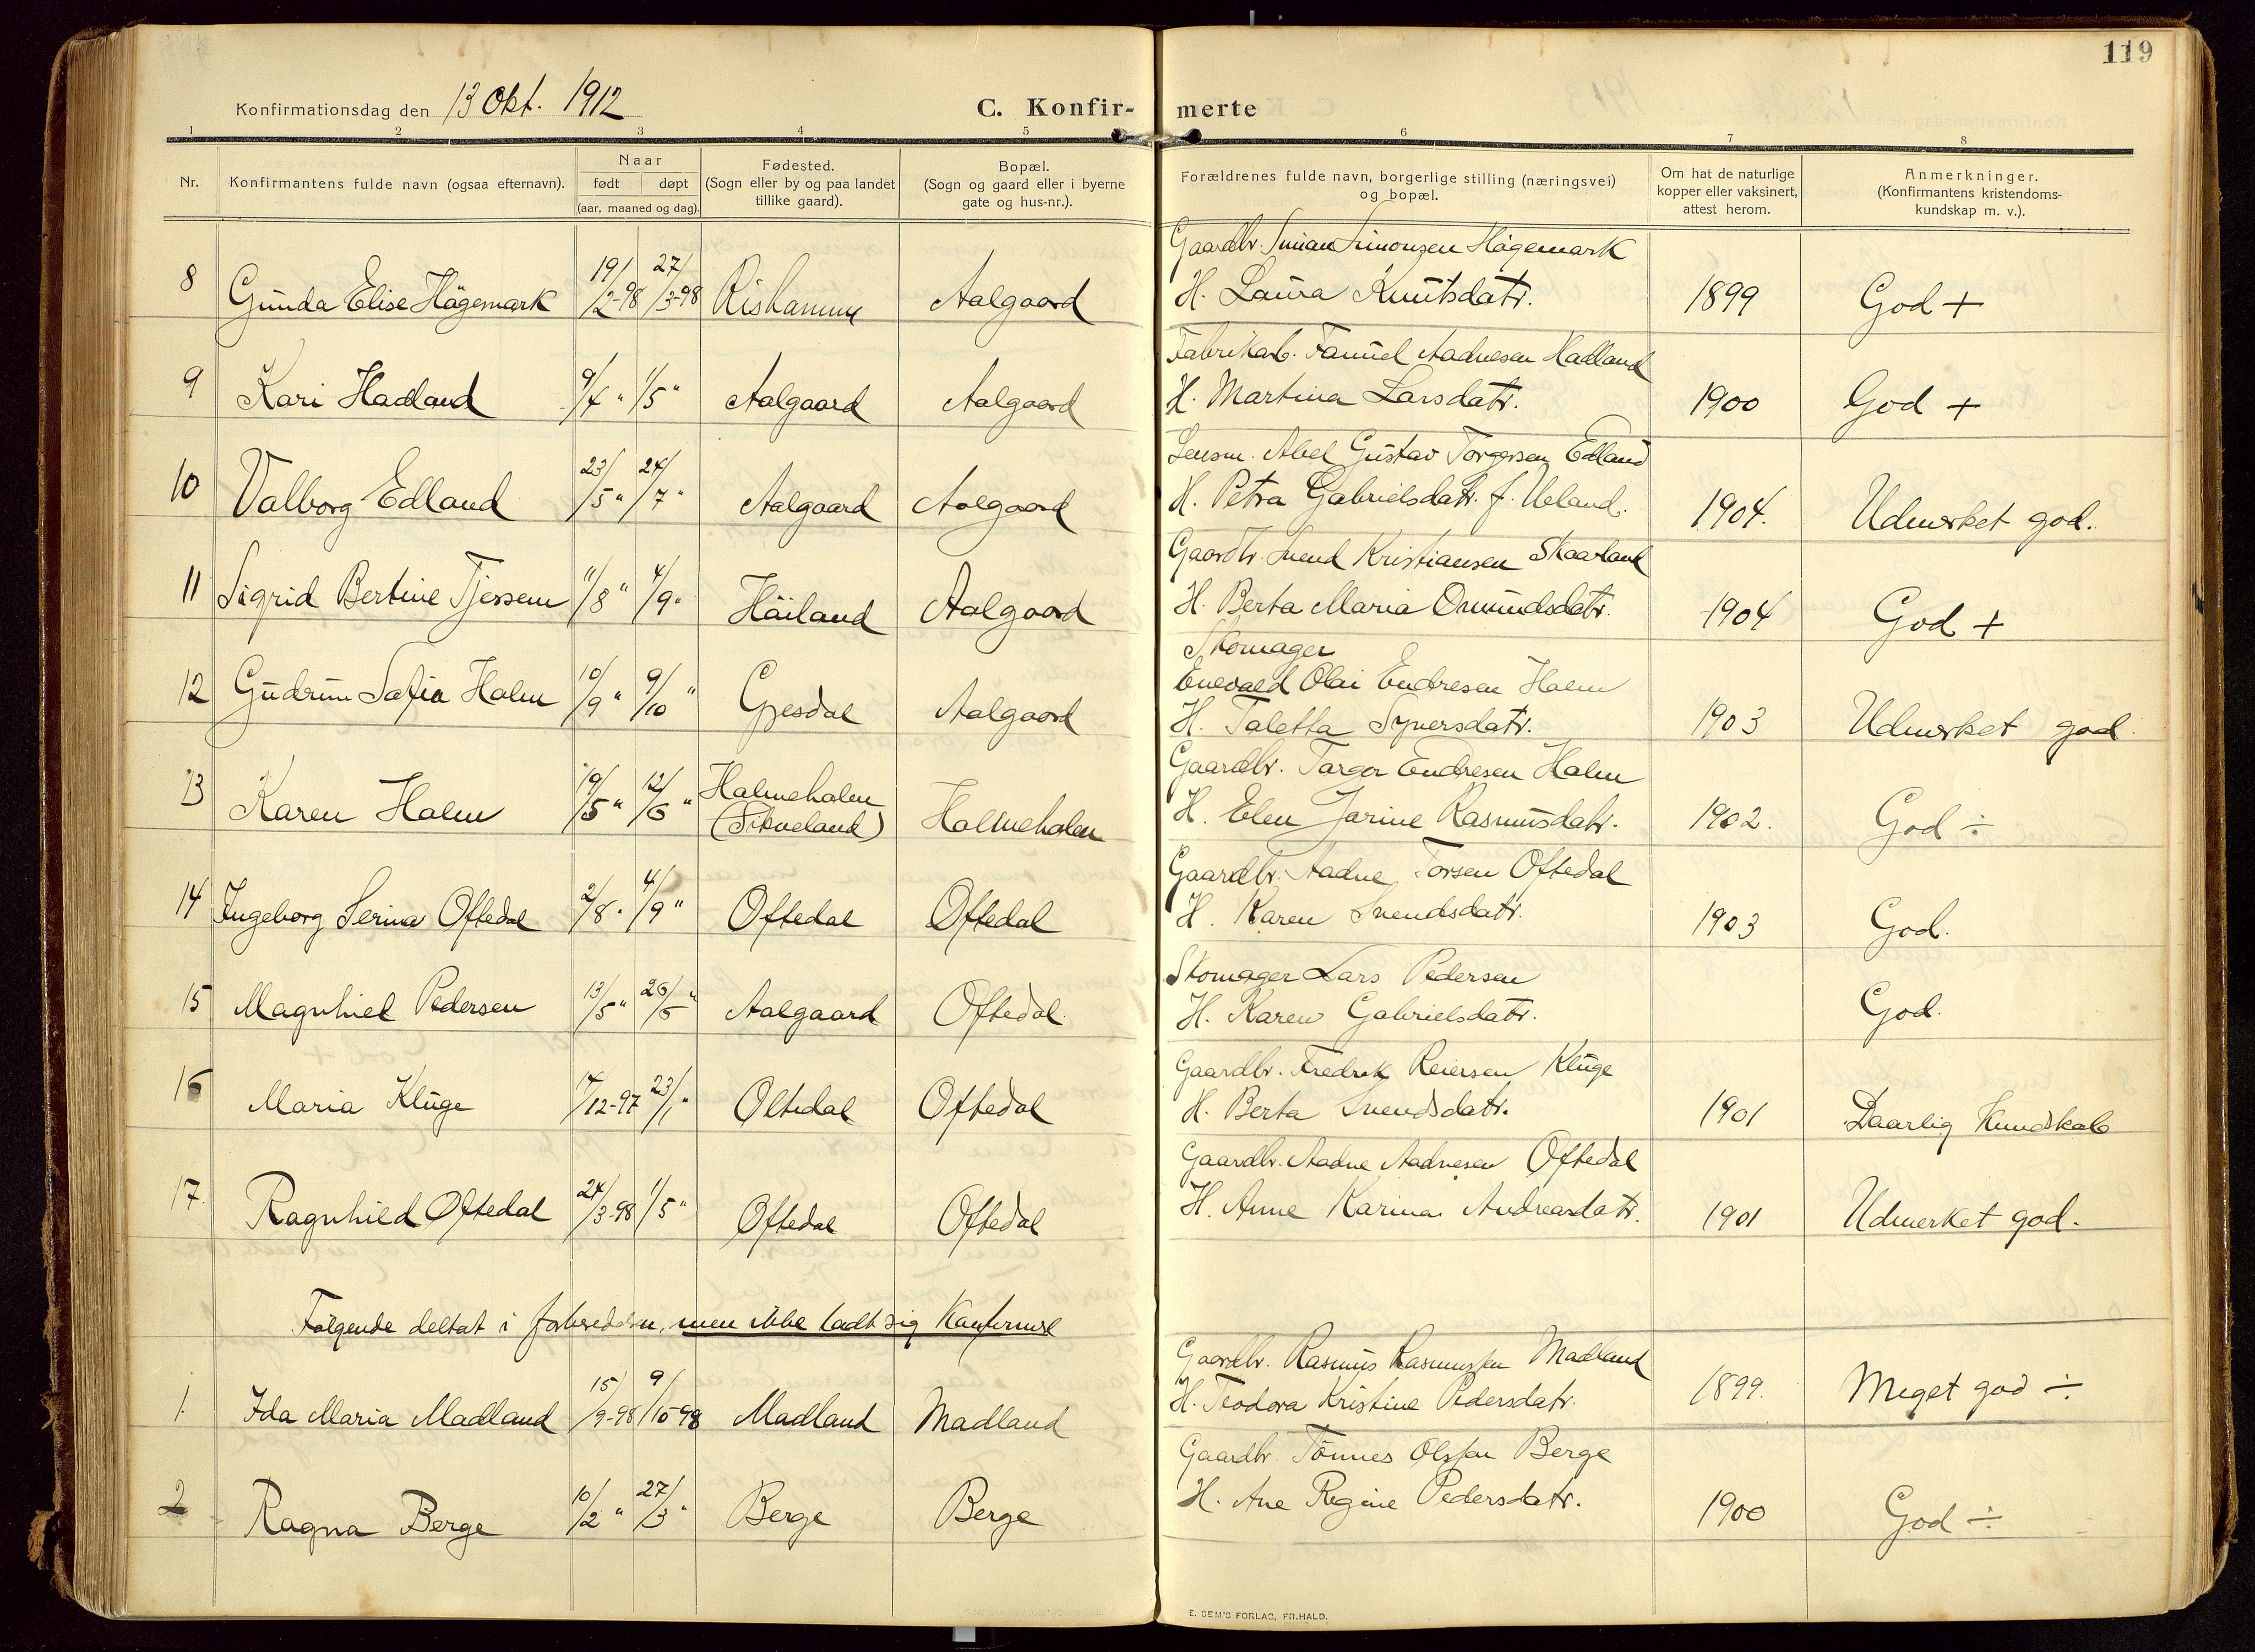 119
Konfirmationsdag den 13 Okt. 1912
C. Konfir- merte
1 2 3 4 5 6 7 8
Nr.
Konfirmantens fulde navn (ogsaa efternavn).
Naar
født døpt
(aar, maaned og dag).
Fødested.
(Sogn eller by og paa landet
tillike gaard).
Bopæl.
(Sogn og gaard eller i byerne
gate og hus-nr.).
Forældrenes fulde navn, borgerlige stilling (næringsvei)
og bopæl.
Om hat de naturlige
kopper eller vaksinert,
attest herom.
Anmerkninger.
(Konfirmantens kristendoms-
kundskap m. v.).
Gaardbr. Simon Simonsen Hägemark
8 Gunda Elise Hägemark 19/2-98 27/3-98 Aalgaard H. Laura Knutsdatr. 1899 God +
Fabrikarb. Aadnesen Hadland
9 Kari Hadland 9/4 " 1/5 " Aalgaard Aalgaard H. Martina Larsdatr. 1900 God +
Lensm. Abel Gustav Torgersen Edland
10 Valborg Edland 23/5 " 24/7 " Aalgaard Aalgaard H. Petra Gabrielsdatr. f. Ueland. 1904. Udmerket god.
Gaardbr. Svend Kristiansen Skaarland
11 Sigrid Bertine Tjessem 11/8 " 4/9 " Häiland Aalgaard H. Berta Maria Omundsdatr. 1904 God +
Skomager
Enevald Olai Endresen Holm
12 Gudrun Sofia Holm 10/9 " 9/10 " Gjesdal Aalgaard H. Taletta Syversdatr. 1903 Udmerket god.
Gaardbr. Endresen Holm
13 Karen Holm 19/5 " 12/6 " Holmeholen
(Sikveland) Holmeholen H. Elen Jorine Rasmusdatr. 1902. God ÷
Gaardbr. Aadne Torsen Oftedal
14 Ingeborg Serina Oftedal 2/8 " 4/9 " Oftedal Oftedal H. Karen Svendsdatr. 1903 God.
Skomager Lars Pedersen
15 Magnhild Pedersen 13/5 " Aalgaard Oftedal. H. Karen Gabrielsdatr. God.
Gaardbr. Fredrik Reiersen Kluge
16 Maria Kluge 23/1 " Oltedal Oftedal H. Berta Svendsdatr. 1901 Daarlig Kundskab
Gaardbr. Aadne Aadnesen Oftedal
17. Ragnhild Oftedal 24/3-98 1/5 " Oftedal Oftedal H. Anne Karina Andreasdatr. 1901 Udmerket god.
Følgende deltat i forbereddsn, men ikke ladt sig Konfirmere
Gaardbr. Rasmus Rasmussen Madland
1. Ida Maria Madland 15/9-98 9/10-98 Madland Madland H. Teodora Kristine Pedersdatr. 1899. Meget god ÷
Gaardbr. Tönnes Olsen Berge
2 Ragna Berge 10/2 " 27/3 " Berge Berge H. Ane Regine Pedersdatr. 1900 God ÷
E. SEM'S FORLAG, FR.HALD.